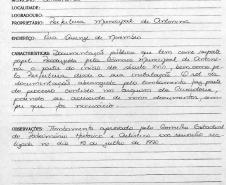 LOCALIDADE:
LOGRADOURO:
PROPRIETÁRIO: Prefeitura Municipal de Antonina
ENDEREÇO: Rua Quinze de Novembro
CARACTERÍSTICAS: Documentação pública que tem como suporte
papel produzida pela Câmara Municipal de Antoni-
na a partir do início do século XVIII, bem como pe-
la Prefeitura desde a sua instalação. O rol da
documentação abrangida pelo tombamento faz parte
do processo contido no arquivo da Curadoria,
podendo ser acrescido de novos documentos, sem-
pre que for necessário.
OBSERVAÇÕES: Tombamento aprovado pelo Conselho Estadual
Patrimônio Histórico e Artístico em reunião rea-
lizada no dia de julho de 1990